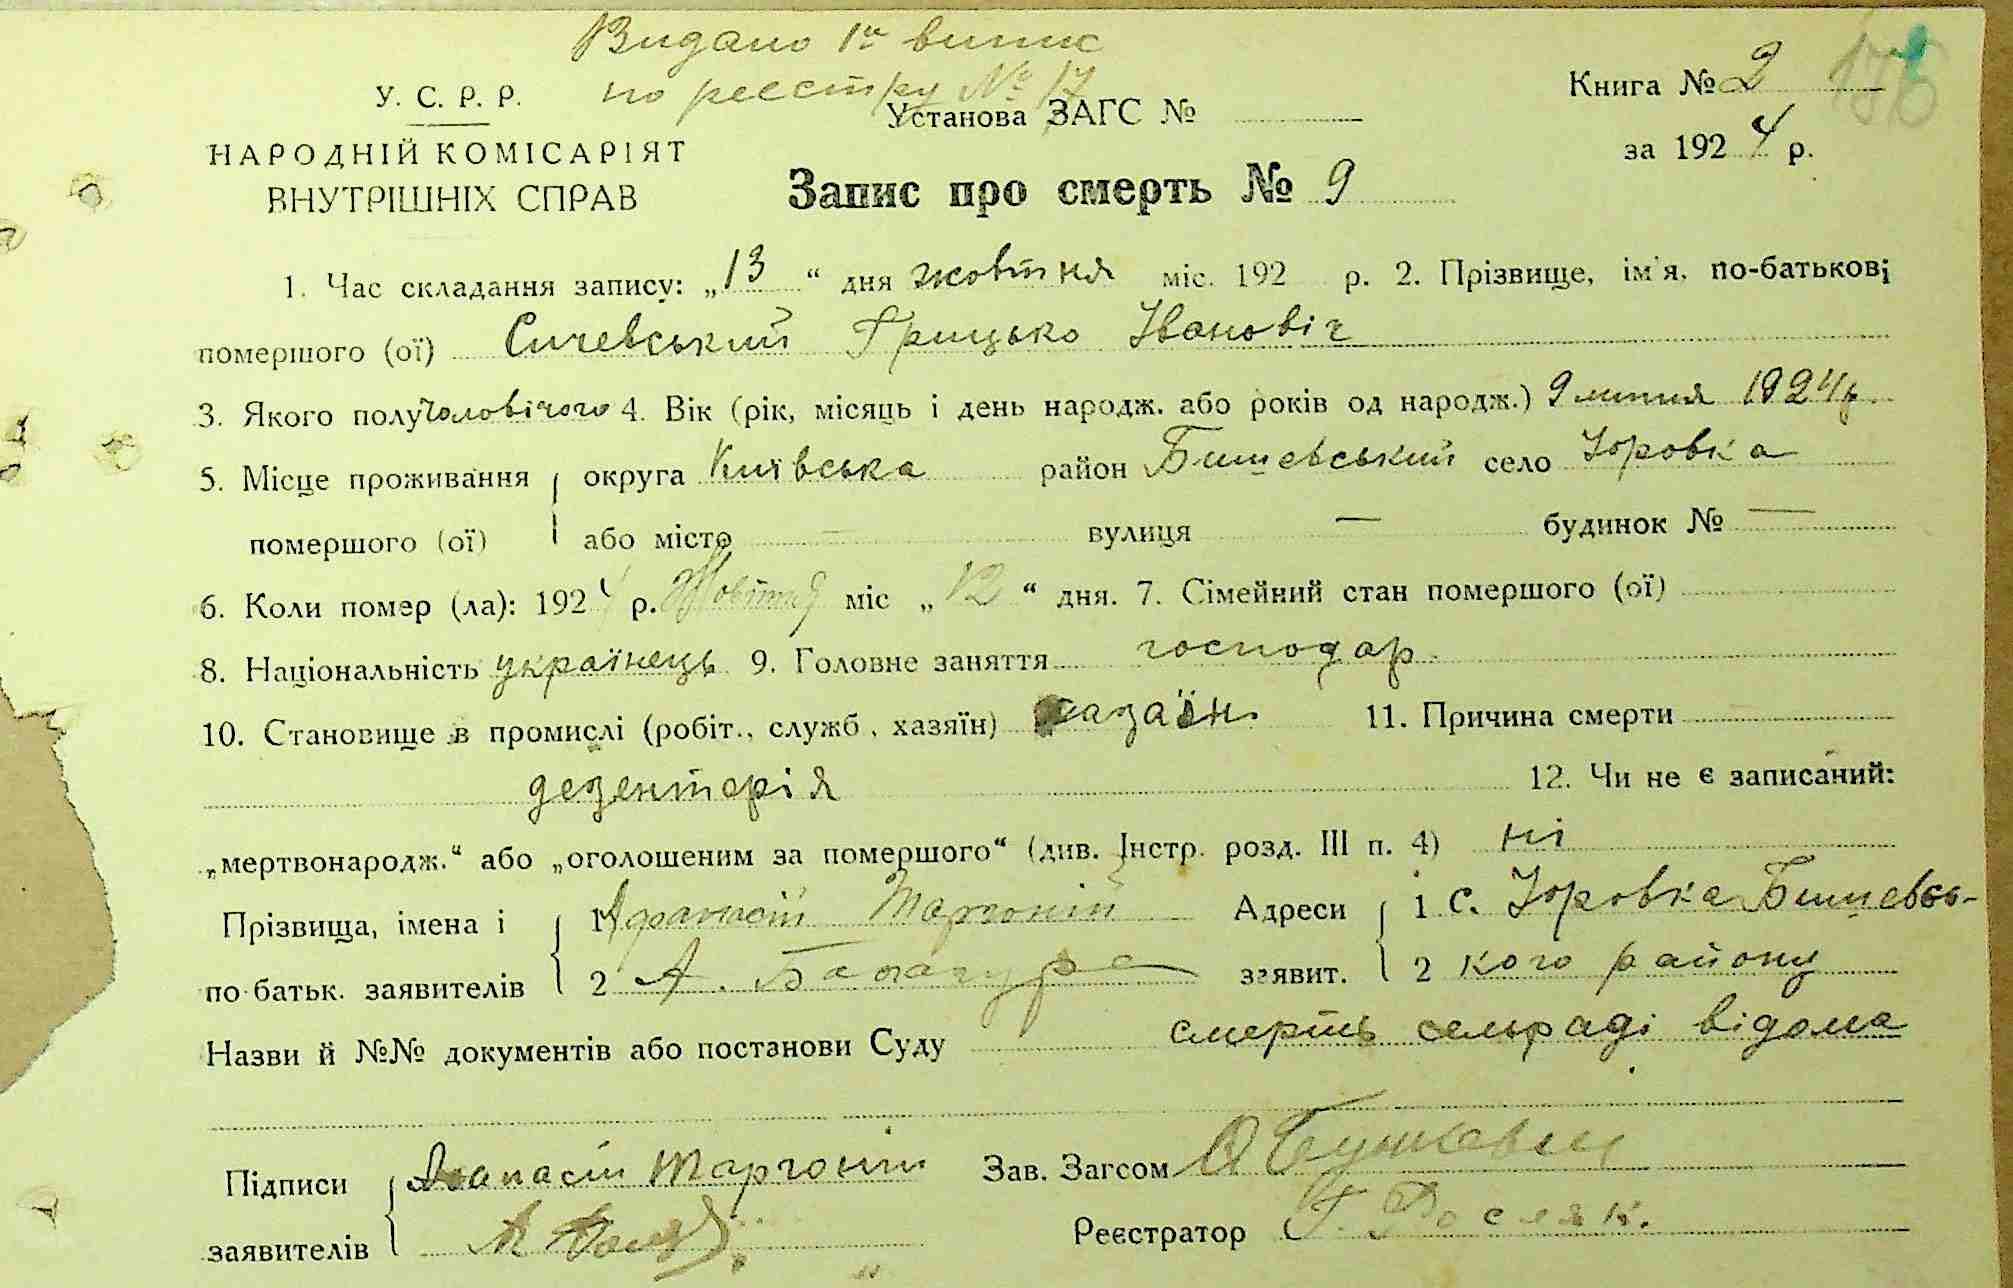 Видано 1й випис
по реєстру № 17
Книга № 2 176
У. С. Р. Р.
Установа ЗАГС №
за 1924 р.
НАРОДНІЙ КОМІСАРІЯТ
ВНУТРІШНІХ СПРАВ
Запис про смерть № 9
1. Час складання запису: „13“ дня жовтня міс. 192 р. 2. Прізвище, ім'я, по-батькові
помершого (ої) Сичевський Грицько Іванович
3. Якого полу чоловічого 4. Вік (рік, місяць і день народж. або років од народж.) 9 липня 1924 р.
5. Місце проживання округа Київська район Бишевський село Юровка
помершого (ої) або місто — вулиця — будинок № —
6. Коли помер (ла): 1924 р. Жовтня міс „12“ дня. 7. Сімейний стан помершого (ої)
8. Національність українець 9. Головне заняття господар
10. Становище в промислі (робіт., служб, хазяїн) хазаїн 11. Причина смерти
дезентерія 12. Чи не є записаний:
„мертвонародж.“ або „оголошеним за помершого“ (див. Інстр. розд. III п. 4) ні
Прізвища, імена і 1 Афанасій Торгоній Адреси 1 с. Юровка Бишевсь-
по батьк. заявителів 2 А. заявит. 2 кого району
Назви й №№ документів або постанови Суду смерть сельраді відома
Підписи Афанасій Торгоній Зав. Загсом
заявителів А Реєстратор Г. Росляк.